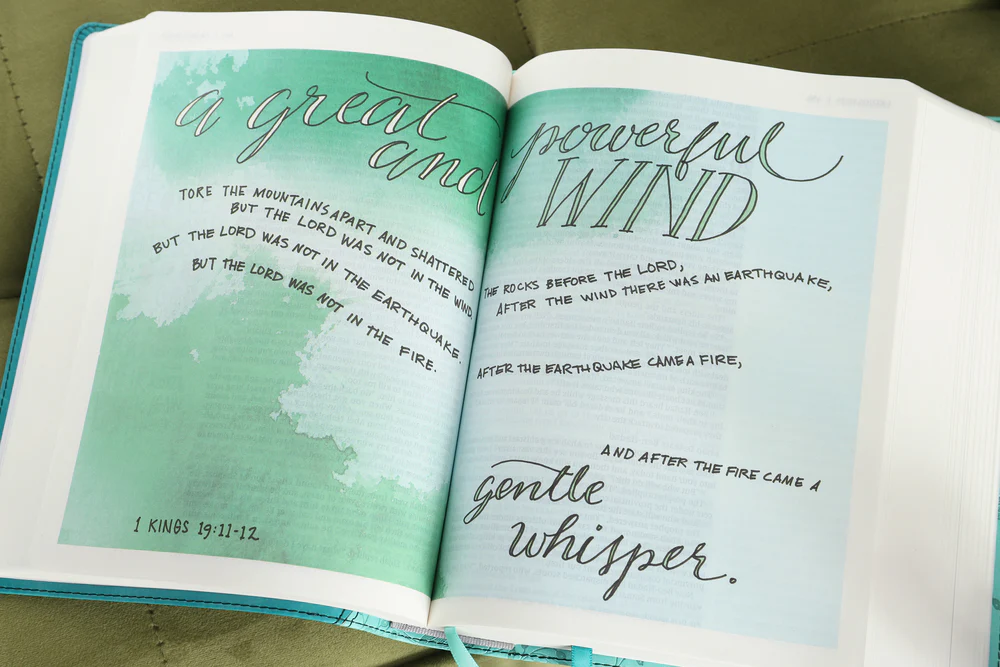 a great
and powerful
WIND
TORE THE MOUNTAINS APART AND SHATTERED THE ROCKS BEFORE THE LORD,
BUT THE LORD WAS NOT IN THE WIND. AFTER THE WIND THERE WAS AN EARTHQUAKE,
BUT THE LORD WAS NOT IN THE EARTHQUAKE. AFTER THE EARTHQUAKE CAME A FIRE,
BUT THE LORD WAS NOT IN THE FIRE.
AND AFTER THE FIRE CAME A
gentle
whisper.
1 KINGS 19:11-12